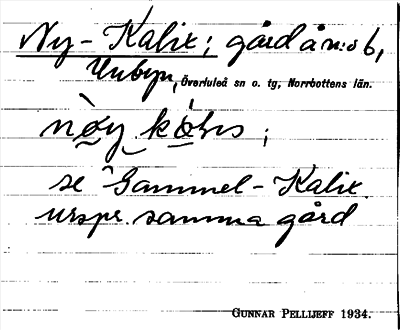 Ny-Kalix; gård å n:o 6,
Unbyn, Överluleå sn o. tg, Norrbottens län.
se Gammel-Kalix
urspr. samma gård
GUNNAR PELLIJEFF 1934.